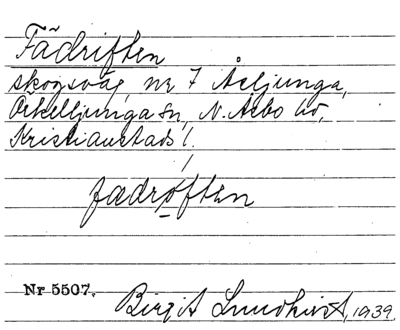 Fädriften
skogsväg, nr 7 Åsljunga,
Örkelljunga sn, N. Åsbo hd,
Kristianstads l.
fadrǝften
Nr 5507.
Birgit Lundkvist, 1939.